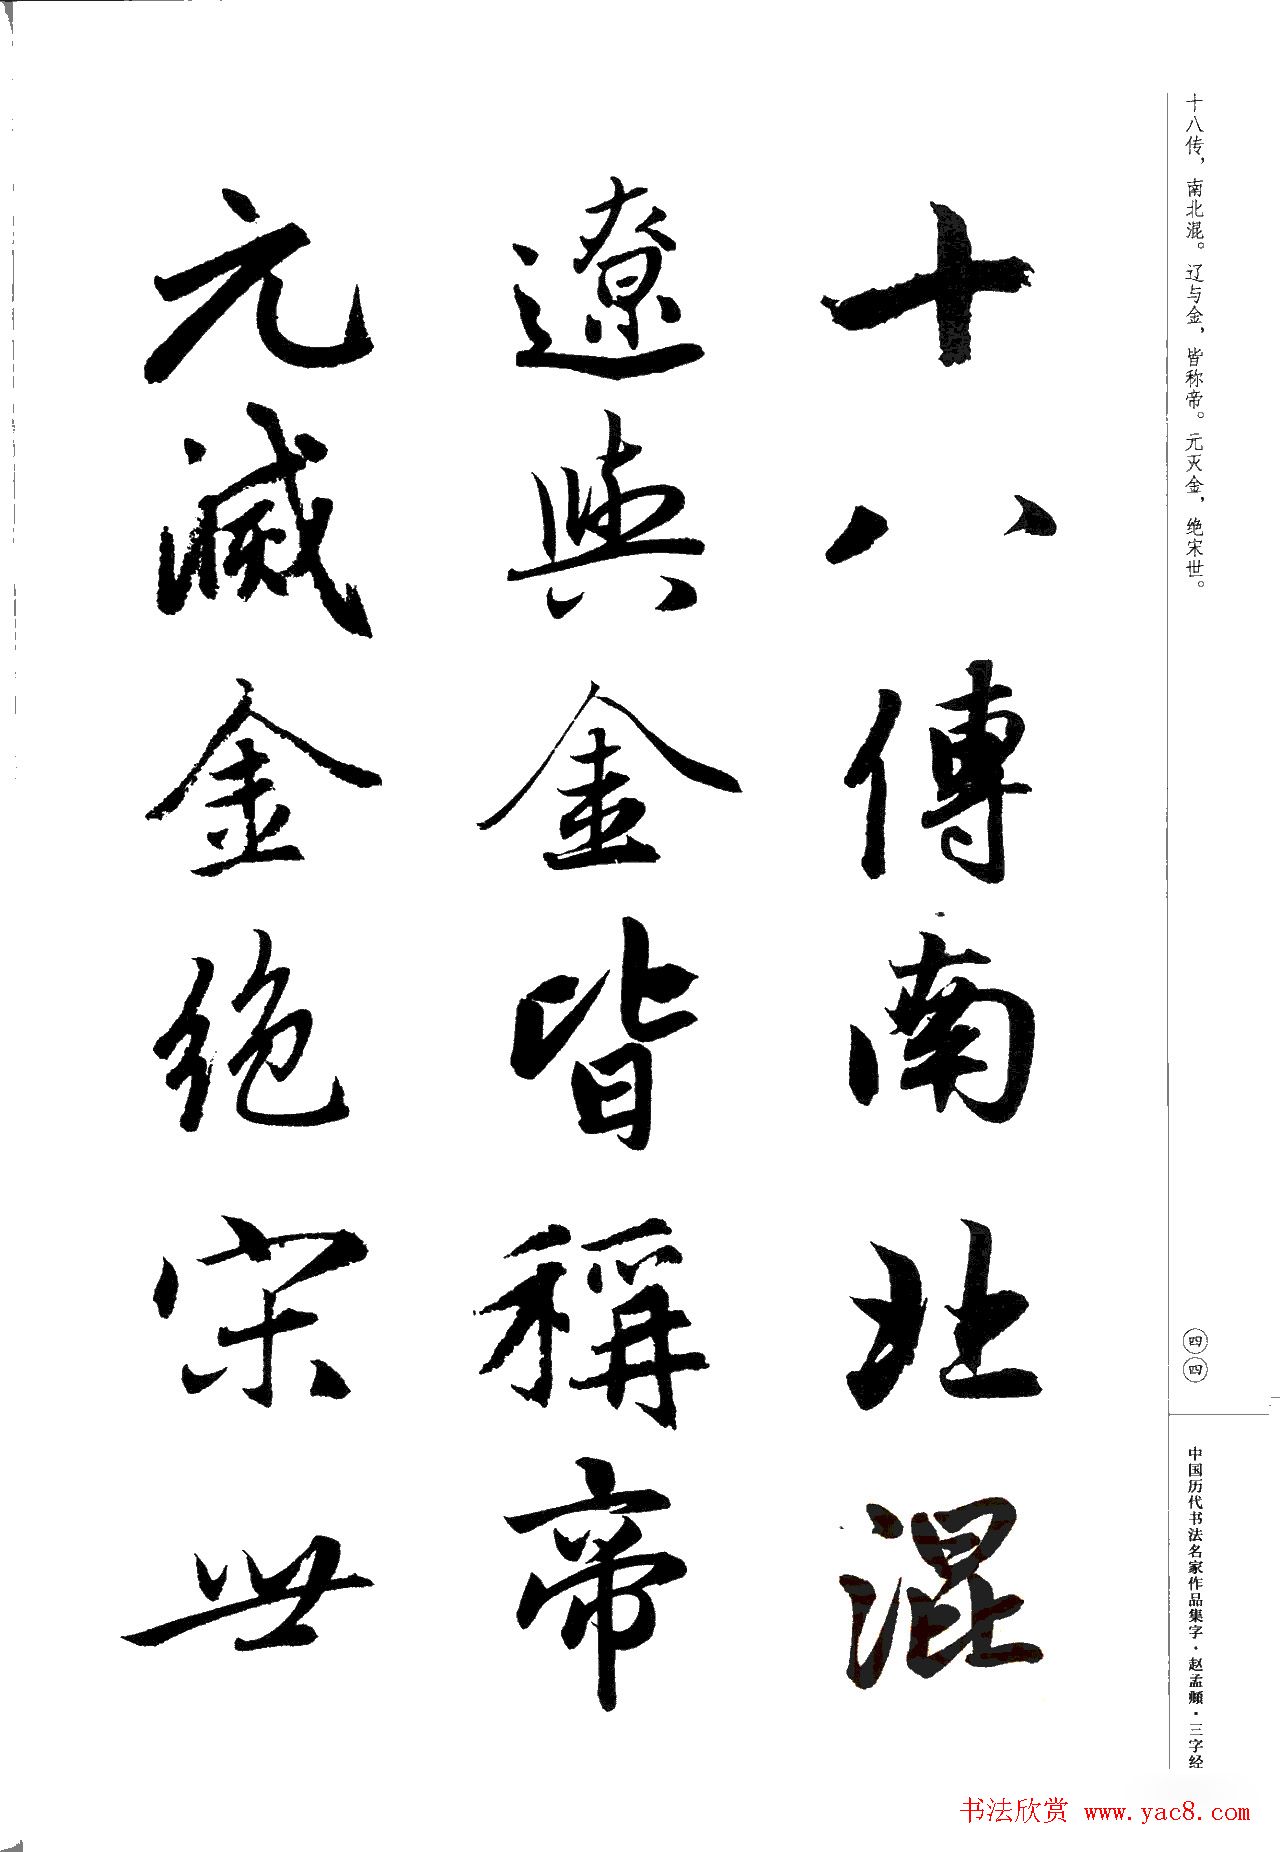 十八傳南北混
遼與金皆稱帝
元滅金絕宋世
十八传，南北混。辽与金，皆称帝。元灭金，绝宋世。
四四
中国历代书法名家作品集字·赵孟頫·三字经
书法欣赏 www.yac8.com